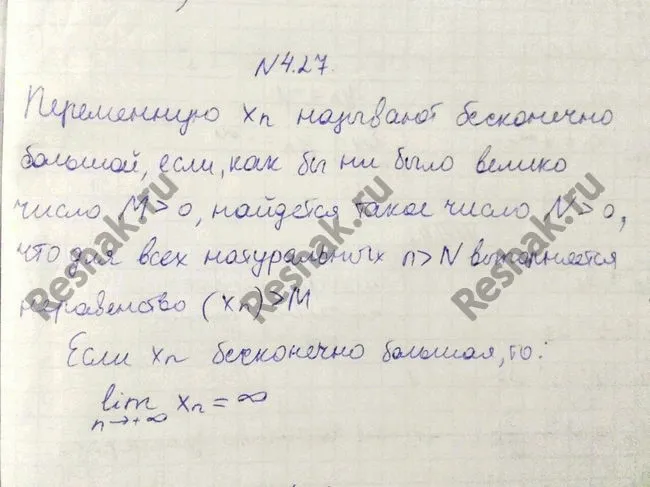 N4.27.
Переменную xₙ называют бесконечно
большой, если, как бы ни было велико
число M>0, найдется такое число N>0,
что для всех натуральных n>N выполняется
неравенство (xₙ)>M
Если xₙ бесконечно большая, то:
lim xₙ = ∞
n→+∞
Reshak.ru
Reshak.ru
Reshak.ru